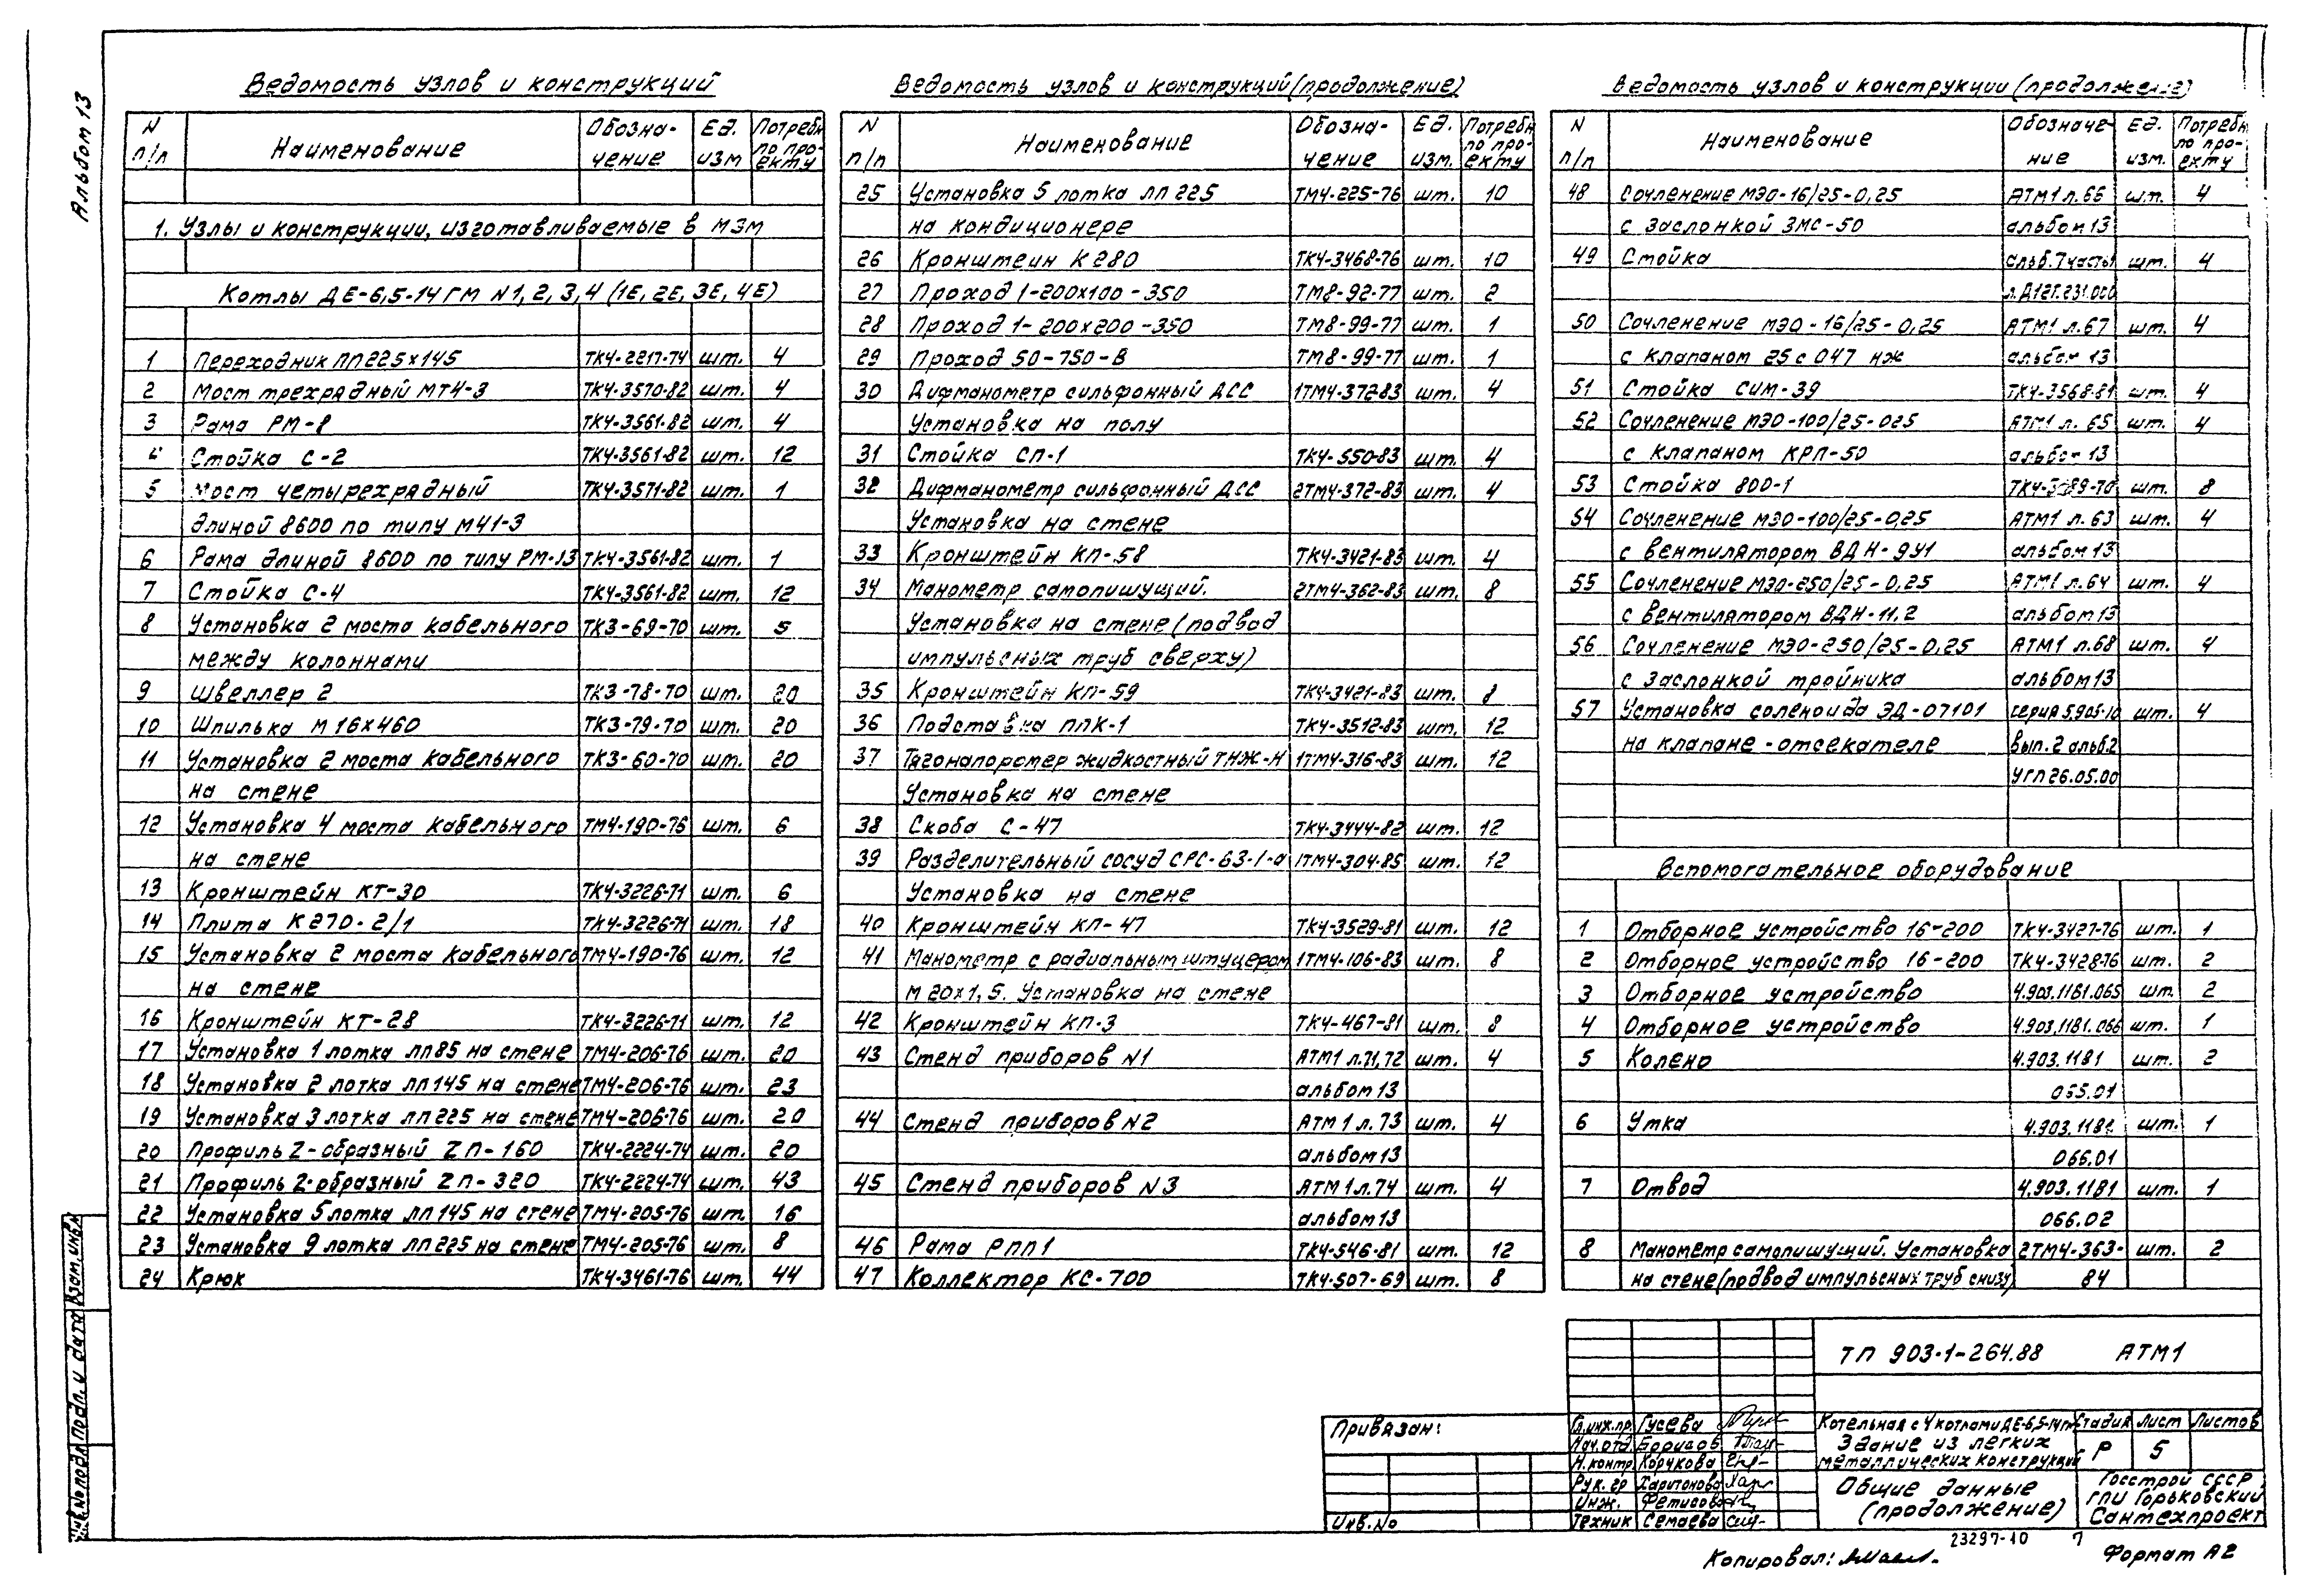 Альбом 13
Ведомость узлов и конструкций
N п/п Наименование Обозна-чение Ед. изм Потребн по про-екту
1. Узлы и конструкции, изготавливаемые в МЗМ
Котлы ДЕ-6,5-14ГМ N1,2,3,4 (1Е, 2Е, 3Е, 4Е)
1 Переходник ПП225х145 ТК4-2217-74 шт. 4
2 Мост трехрядный МТ4-3 ТК4-3570-82 шт. 4
3 Рама РМ-8 ТК4-3561-82 шт. 4
4 Стойка С-2 ТК4-3561-82 шт. 12
5 Мост четырехрядный ТК4-3571-82 шт. 1
длиной 8600 по типу М41-3
6 Рама длиной 8600 по типу РМ-13 ТК4-3561-82 шт. 1
7 Стойка С-4 ТК4-3561-82 шт. 12
8 Установка 2 моста кабельного ТК3-69-70 шт. 5
между колоннами
9 Швеллер 2 ТК3-78-70 шт. 20
10 Шпилька М16х460 ТК3-79-70 шт. 20
11 Установка 2 моста кабельного ТК3-60-70 шт. 20
на стене
12 Установка 4 моста кабельного ТМ4-190-76 шт. 6
на стене
13 Кронштейн КТ-30 ТК4-3226-71 шт. 6
14 Плита К270-2/1 ТК4-3226-71 шт. 18
15 Установка 2 моста кабельного ТМ4-190-76 шт. 12
на стене
16 Кронштейн КТ-28 ТК4-3226-71 шт. 12
17 Установка 1 лотка лп85 на стене ТМ4-206-76 шт. 20
18 Установка 2 лотка лп145 на стене ТМ4-206-76 шт. 23
19 Установка 3 лотка лп225 на стене ТМ4-206-76 шт. 20
20 Профиль Z-образный ZП-160 ТК4-2224-74 шт. 20
21 Профиль Z-образный ZП-320 ТК4-2224-74 шт. 43
22 Установка 5 лотка лп145 на стене ТМ4-205-76 шт. 16
23 Установка 9 лотка лп225 на стене ТМ4-205-76 шт. 8
24 Крюк ТК4-3461-76 шт. 44
Ведомость узлов и конструкций (продолжение)
N п/п Наименование Обозна-чение Ед. изм. Потребн по про-екту
25 Установка 5 лотка лп 225 ТМ4-225-76 шт. 10
на кондиционере
26 Кронштеин К280 ТК4-3468-76 шт. 10
27 Проход 1-200х100-350 ТМ8-92-77 шт. 2
28 Проход 1-200х200-350 ТМ8-99-77 шт. 1
29 Проход 50-750-В ТМ8-99-77 шт. 1
30 Дифманометр сильфонный ДСС 1ТМ4-372-83 шт. 4
Установка на полу
31 Стойка СП-1 ТК4-550-83 шт. 4
32 Дифманометр сильфонный ДСС 2ТМ4-372-83 шт. 4
Установка на стене
33 Кронштейн КП-58 ТК4-3421-83 шт. 4
34 Манометр самопишущий. 2ТМ4-362-83 шт. 8
Установка на стене (подвод
импульсных труб сверху)
35 Кронштейн КП-59 ТК4-3421-83 шт. 8
36 Подставка ППК-1 ТК4-3512-83 шт. 12
37 Тягонапоромер жидкостный ТНЖ-Н 1ТМ4-316-83 шт. 12
Установка на стене
38 Скоба С-47 ТК4-3444-82 шт. 12
39 Разделительный сосуд СРС-63-1-а 1ТМ4-304-85 шт. 12
Установка на стене
40 Кронштейн КП-47 ТК4-3529-81 шт. 12
41 Манометр с радиальным штуцером 1ТМ4-106-83 шт. 8
М20х1,5. Установка на стене
42 Кронштейн КП-3 ТК4-467-81 шт. 8
43 Стенд приборов N1 АТМ1 л.71,72 шт. 4
альбом 13
44 Стенд приборов N2 АТМ1 л.73 шт. 4
альбом 13
45 Стенд приборов N3 АТМ1 л.74 шт. 4
альбом 13
46 Рама РПП1 ТК4-546-81 шт. 12
47 Коллектор КС-700 ТК4-507-69 шт. 8
Ведомость узлов и конструкции (продолжение)
N п/п Наименование Обозначе-ние Ед. изм. Потребн по про-екту
48 Сочленение МЭО-16/25-0,25 АТМ1 л.66 шт. 4
с заслонкой ЗМС-50 альбом 13
49 Стойка альб.7 часть1 шт. 4
50 Сочленение МЭО-16/25-0,25 АТМ1 л.67 шт. 4
с клапаном 25с 047 нж альбом 13
51 Стойка СИМ-39 ТК4-3568-81 шт. 4
52 Сочленение МЭО-100/25-025 АТМ1 л. 65 шт. 4
с клапаном КРП-50 альбом 13
53 Стойка 800-1 шт. 8
54 Сочленение МЭО-100/25-0,25 АТМ1 л. 63 шт. 4
с вентилятором ВДН-9У1 альбом 13
55 Сочленение МЭО-250/25-0,25 АТМ1 л.64 шт. 4
с вентилятором ВДН-11,2 альбом 13
56 Сочленение МЭО-250/25-0,25 АТМ1 л.68 шт. 4
с заслонкой тройника альбом 13
57 Установка соленоида ЭД-07101 серия 5.905-10 шт. 4
на клапане-отсекателе вып.2 альб.2
УГП26.05.00
Вспомогательное оборудование
1 Отборное устройство 16-200 ТК4-3427-76 шт. 1
2 Отборное устройство 16-200 ТК4-3428-76 шт. 2
3 Отборное устройство 4.903.1181.065 шт. 2
4 Отборное устройство 4.903.1181.066 шт. 1
5 Колено 4.903.1181 шт. 2
065.01
6 Утка 4.903.1181 шт. 1
066.01
7 Отвод 4.903.1181 шт. 1
066.02
8 Манометр самопишущий. Установка 2ТМ4-363- шт. 2
на стене (подвод импульсных труб снизу) 84
ТП 903-1-264.88 АТМ1
Привязан:
Инв.No
Гл.инж.пр. Гусева
Нач.отд. Борисов
Н.контр. Корчкова
Рук.гр Харитонова
Инж. Фетисова
Техник Семаева
Котельная с 4 котлами ДЕ-6,5-14ГМ
Здание из легких
металлических конструкций
Стадия Лист Листов
Р 5
Общие данные
(продолжение)
Госстрой СССР
ГПИ Горьковский
Сантехпроект
23297-10 7
Копировал:
Формат А2
Взам.инв.N
Подп. и дата
Инв.No подл